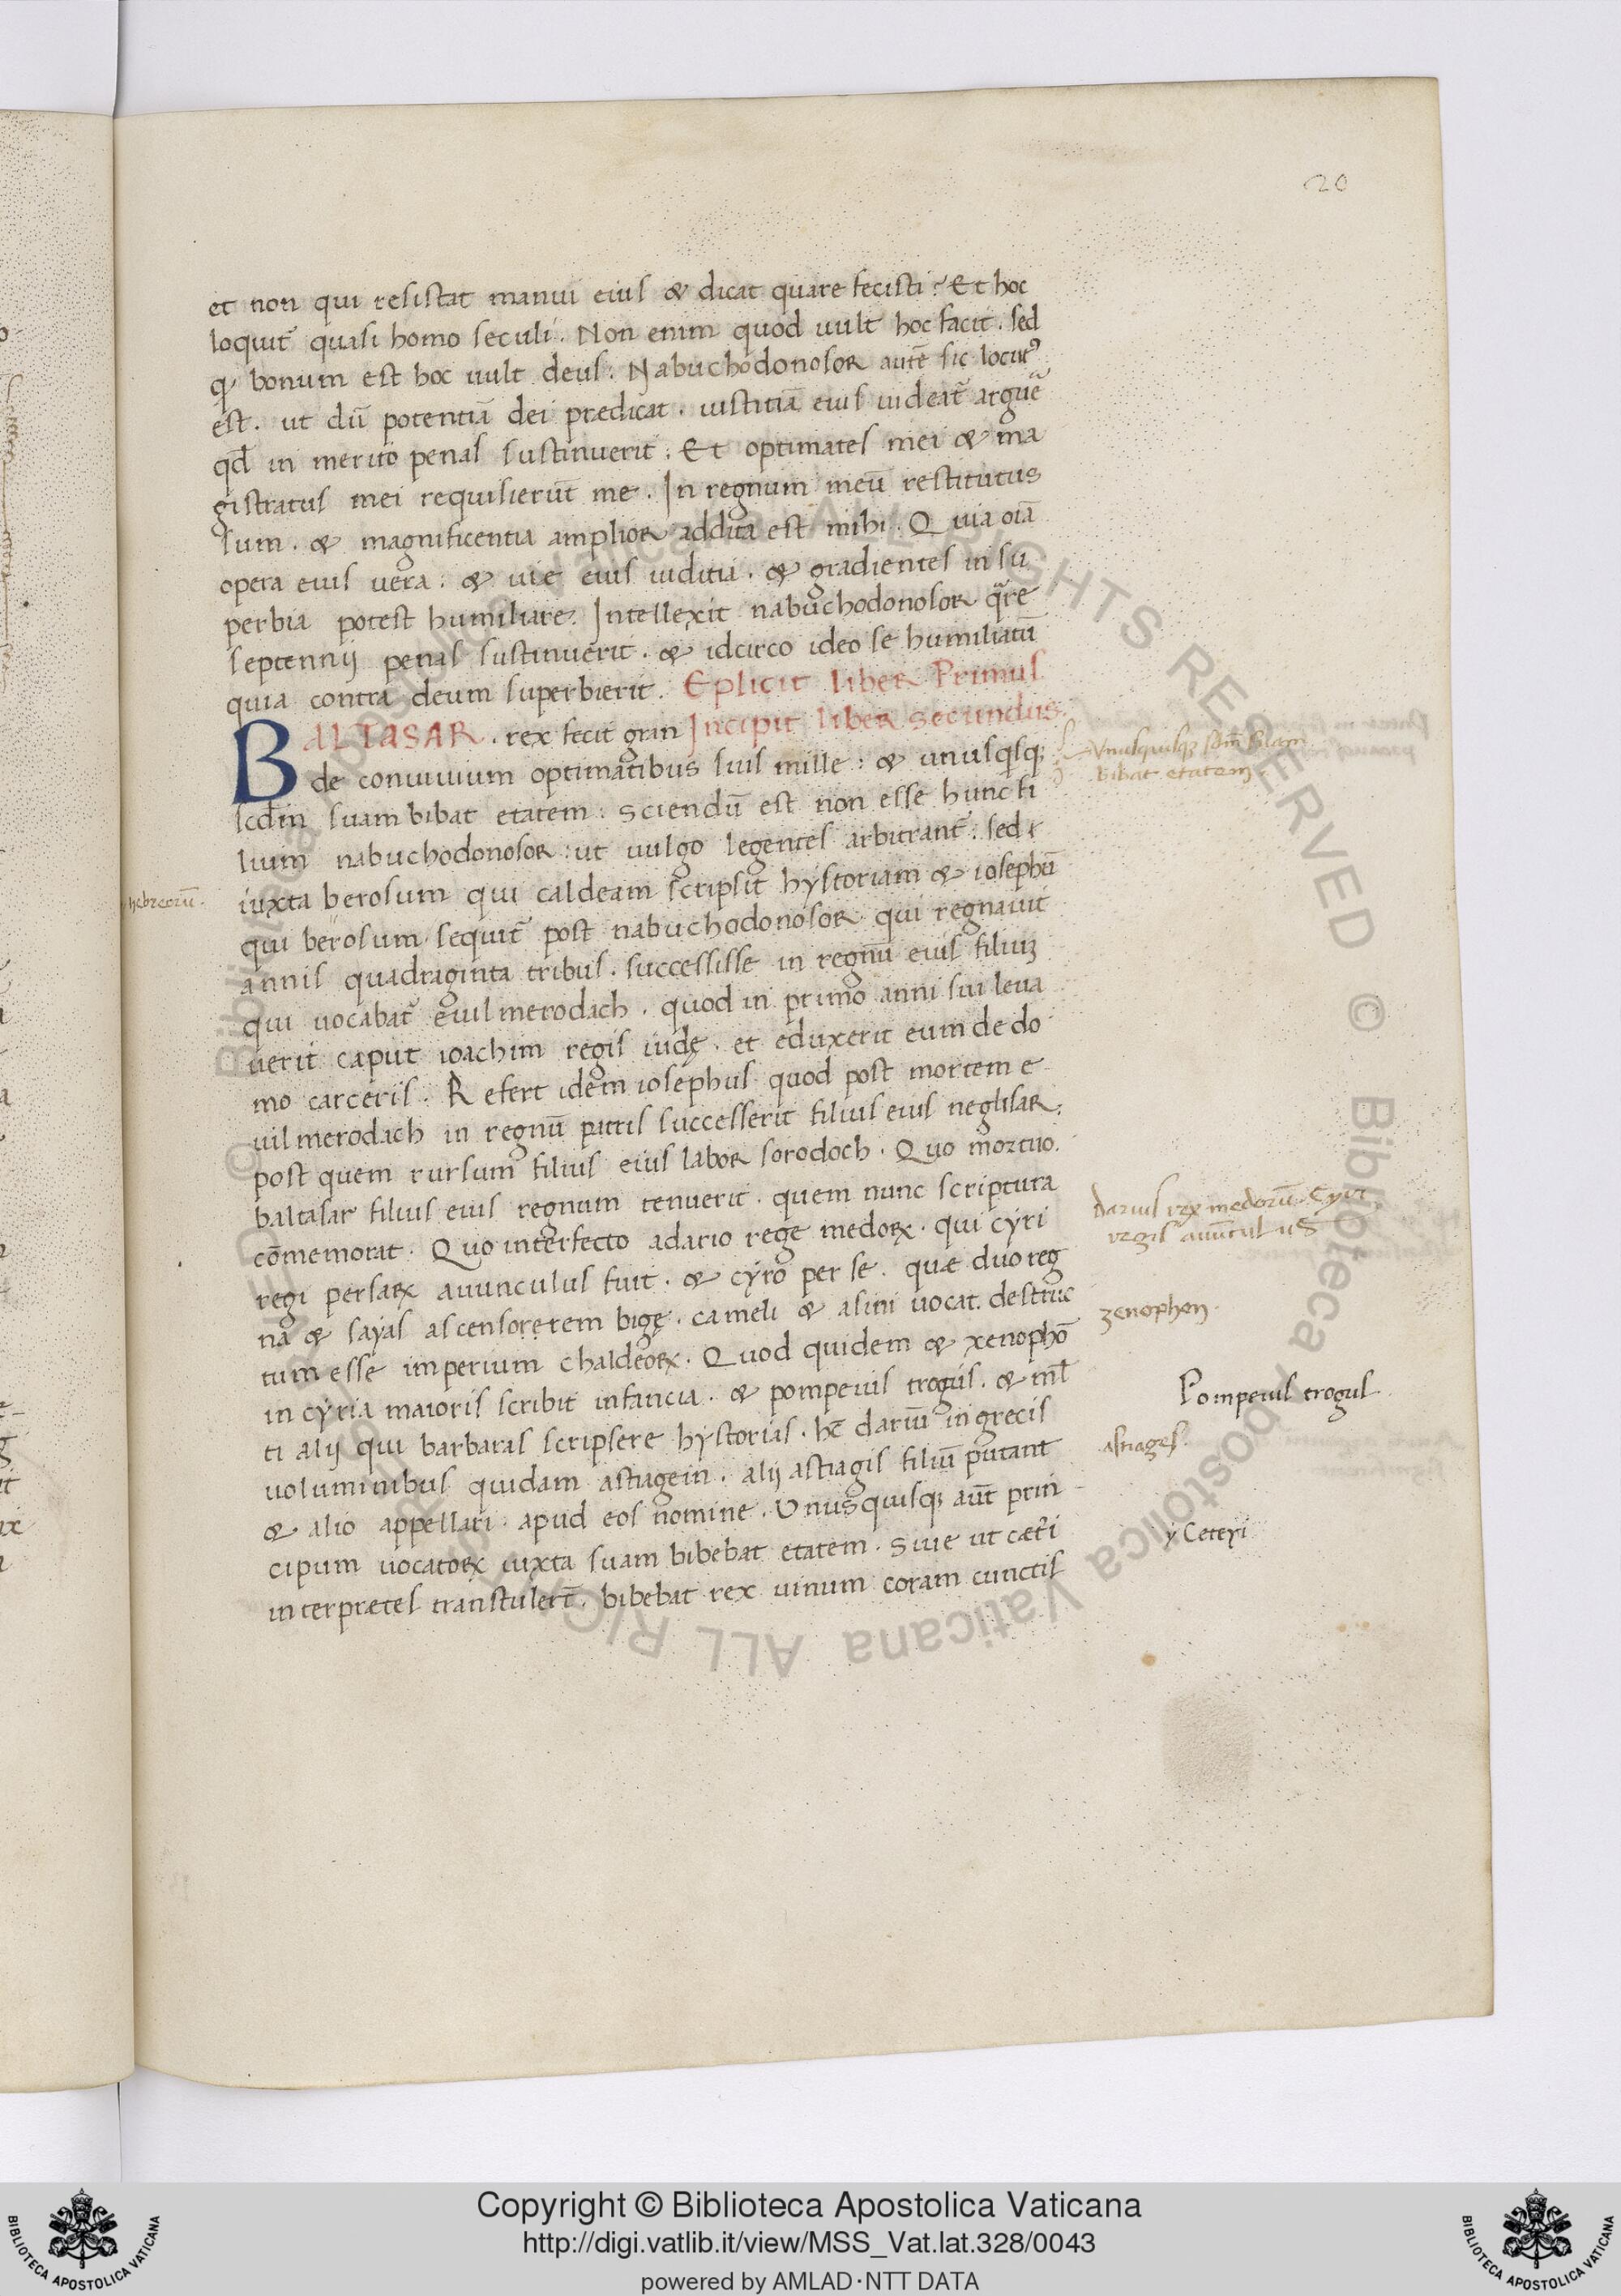 20
et non qui resistat manui eius & dicat quare fecisti? Et hoc
loquit̃ quasi homo seculi. Non enim quod uult hoc facit. sed
q bonum est hoc uult deus. Nabuchodonosor autẽ sic locut᾽
est. ut dũ potentiã dei predicat. iustitiã eius uideat̃ arguẽ
qđ in merito penas sustinuerit. Et optimates mei & ma
gistratus mei requisierũt me. In regnum meũ restitutus
sum. & magnificentia amplior addita est mihi. Quia oĩa
opera eius uera. & uie eius iuditia. & gradientes in su
perbia potest humiliare. Intellexit nabuchodonosor q̃re
septennij penas sustinuerit. & idcirco ideo se humiliatũ
quia contra deum superbierit. Eplicit liber Primus
BALTASAR. rex fecit gran Incipit liber secundus.
de conuiuium optimatibus suis mille: & unusqsq;
scđm suam bibat etatem. Sciendũ est non esse hunc fi
Vnusquisq; scđm suam
bibat etatem.
lium nabuchodonosor: ut uulgo legentes arbitrant̃. sed
hebreorũ.
iuxta berosum qui caldeam scripsit hystoriam & iosephũ
qui berosum sequit̃ post nabuchodonosor qui regnauit
annis quadraginta tribus. successisse in regnũ eius filiuz
qui uocabat̃ euilmerodach. quod in primo anni sui leua
uerit caput ioachim regis iudę. et eduxerit eum de do
mo carceris. Refert idem iosephus quod post mortem e
uilmerodach in regnũ patris successerit filius eius neglisar:
post quem rursum filius eius labor sorodoch. Quo mortuo.
baltasar filius eius regnum tenuerit. quem nunc scriptura
cõmemorat. Quo interfecto adario rege medoꝝ. qui cyri
Darius rex medorũ. Cyri
regis auũculus
regi persaꝝ auunculus fuit. & cyro per se. quæ duo reg
na & sayas ascensorerem bigę. cameli & asini uocat. destruc
zenophon.
tum esse imperium chaldeoꝝ. Quod quidem & xenophõ
in cyria maioris scribit infancia. & pompeius trogus. & ml̃
Pompeius trogus
ti alij qui barbaras scripsere hystorias. hc̃ dariũ in grecis
astiages.
uoluminibus quidam astiagein. alij astiagis filiũ putant
& alio appellari apud eos nomine. Vnusquisq; aũt prin
cipum uocatoꝝ iuxta suam bibebat etatem. Siue ut cæt̃i
y Ceteri
interpretes transtulert̃. bibebat rex uinum coram cunctis
© Biblioteca Apostolica Vaticana ALL RIGHTS RESERVED © Biblioteca Apostolica Vaticana ALL RIGHTS RESERVED
Copyright © Biblioteca Apostolica Vaticana
http://digi.vatlib.it/view/MSS_Vat.lat.328/0043
powered by AMLAD·NTT DATA
BIBLIOTECA APOSTOLICA VATICANA
BIBLIOTECA APOSTOLICA VATICANA